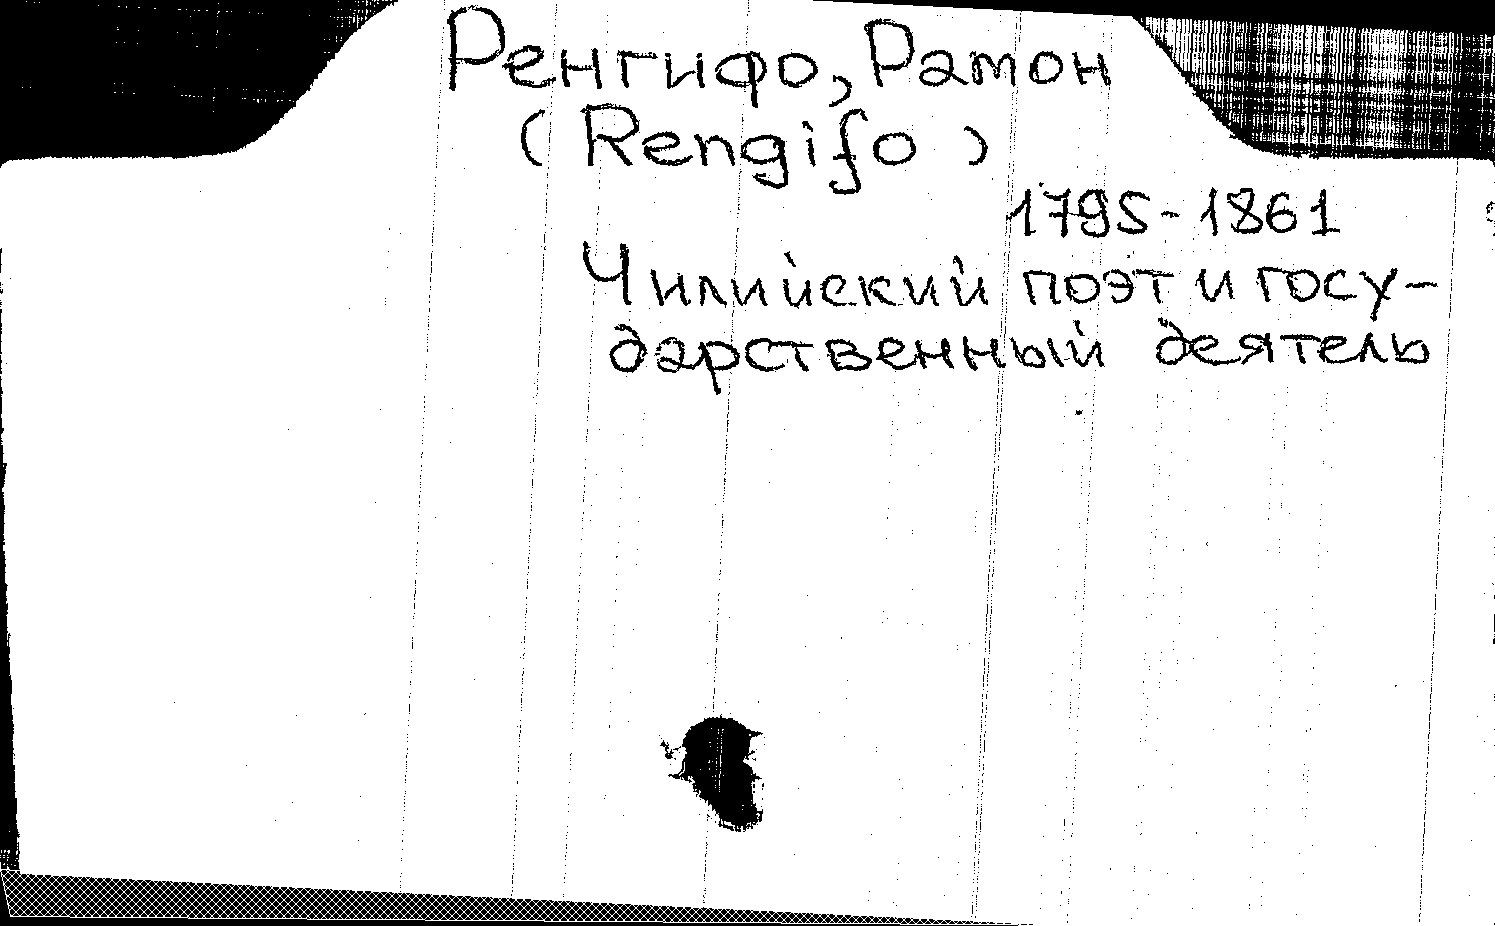 Ренгифо, Рамон
(Rengifo)
1795-1861
Чилийский поэт и госу-
дарственный деятель